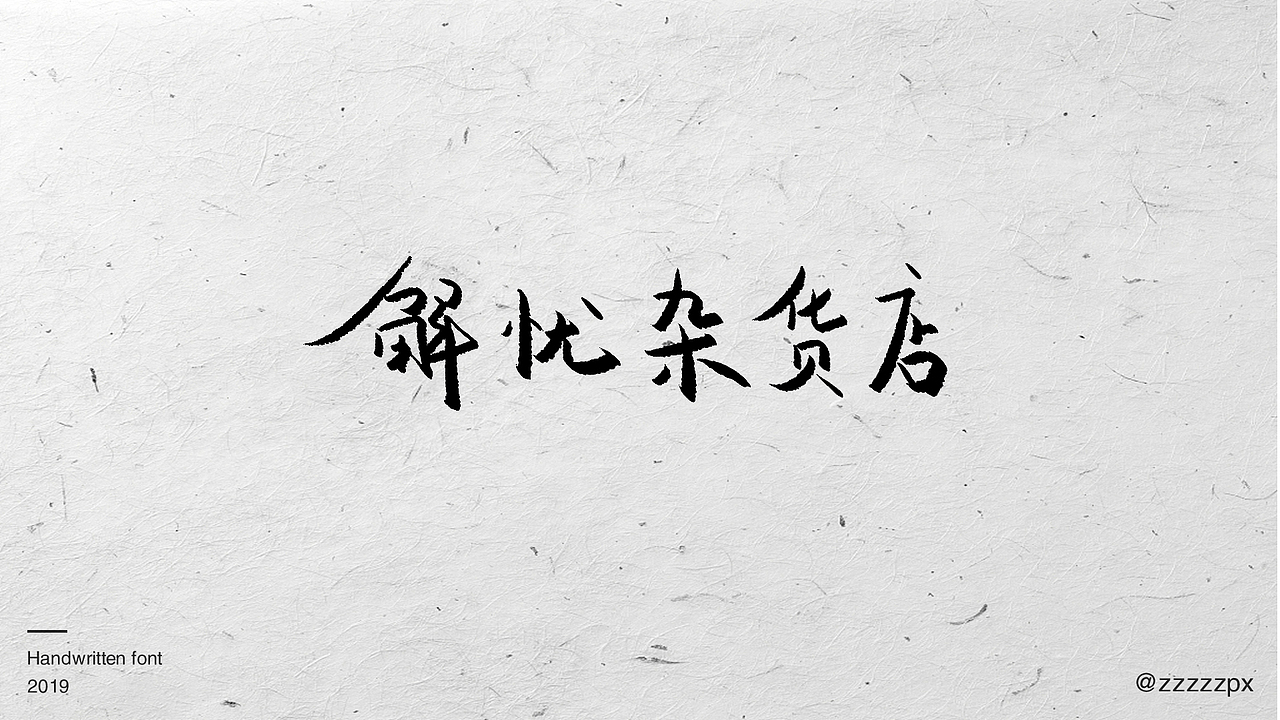 解忧杂货店
Handwritten font
2019
@zzzzzpx